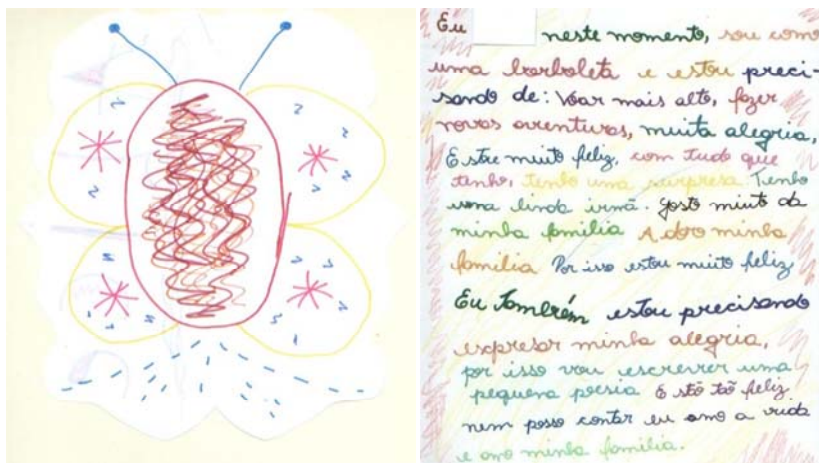 Eu neste momento, sou como
uma borboleta e estou preci-
sando de: Voar mais alto, fazer
novas aventuras, muita alegria,
Estou muito feliz, com tudo que
tenho, tenho uma surpresa. Tenho
uma linda irmã. gosto muito da
minha família Adoro minha
família Por isso estou muito feliz
Eu também estou precisando
expresar minha alegria,
por isso vou escrever uma
pequena poesia Estō tão feliz
nem posso contar eu amo a vida
e amo minha família.